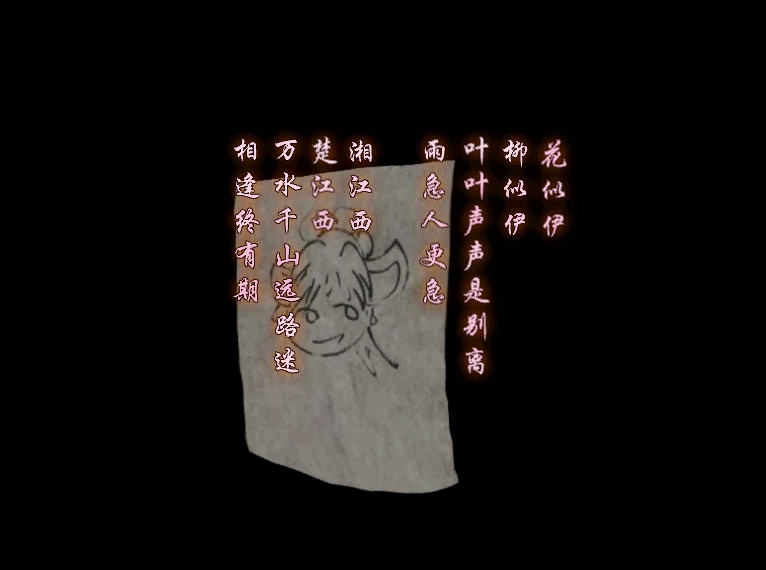 花似伊
柳似伊
叶叶声声是别离
雨急人更急
湘江西
楚江西
万水千山远路迷
相逢终有期